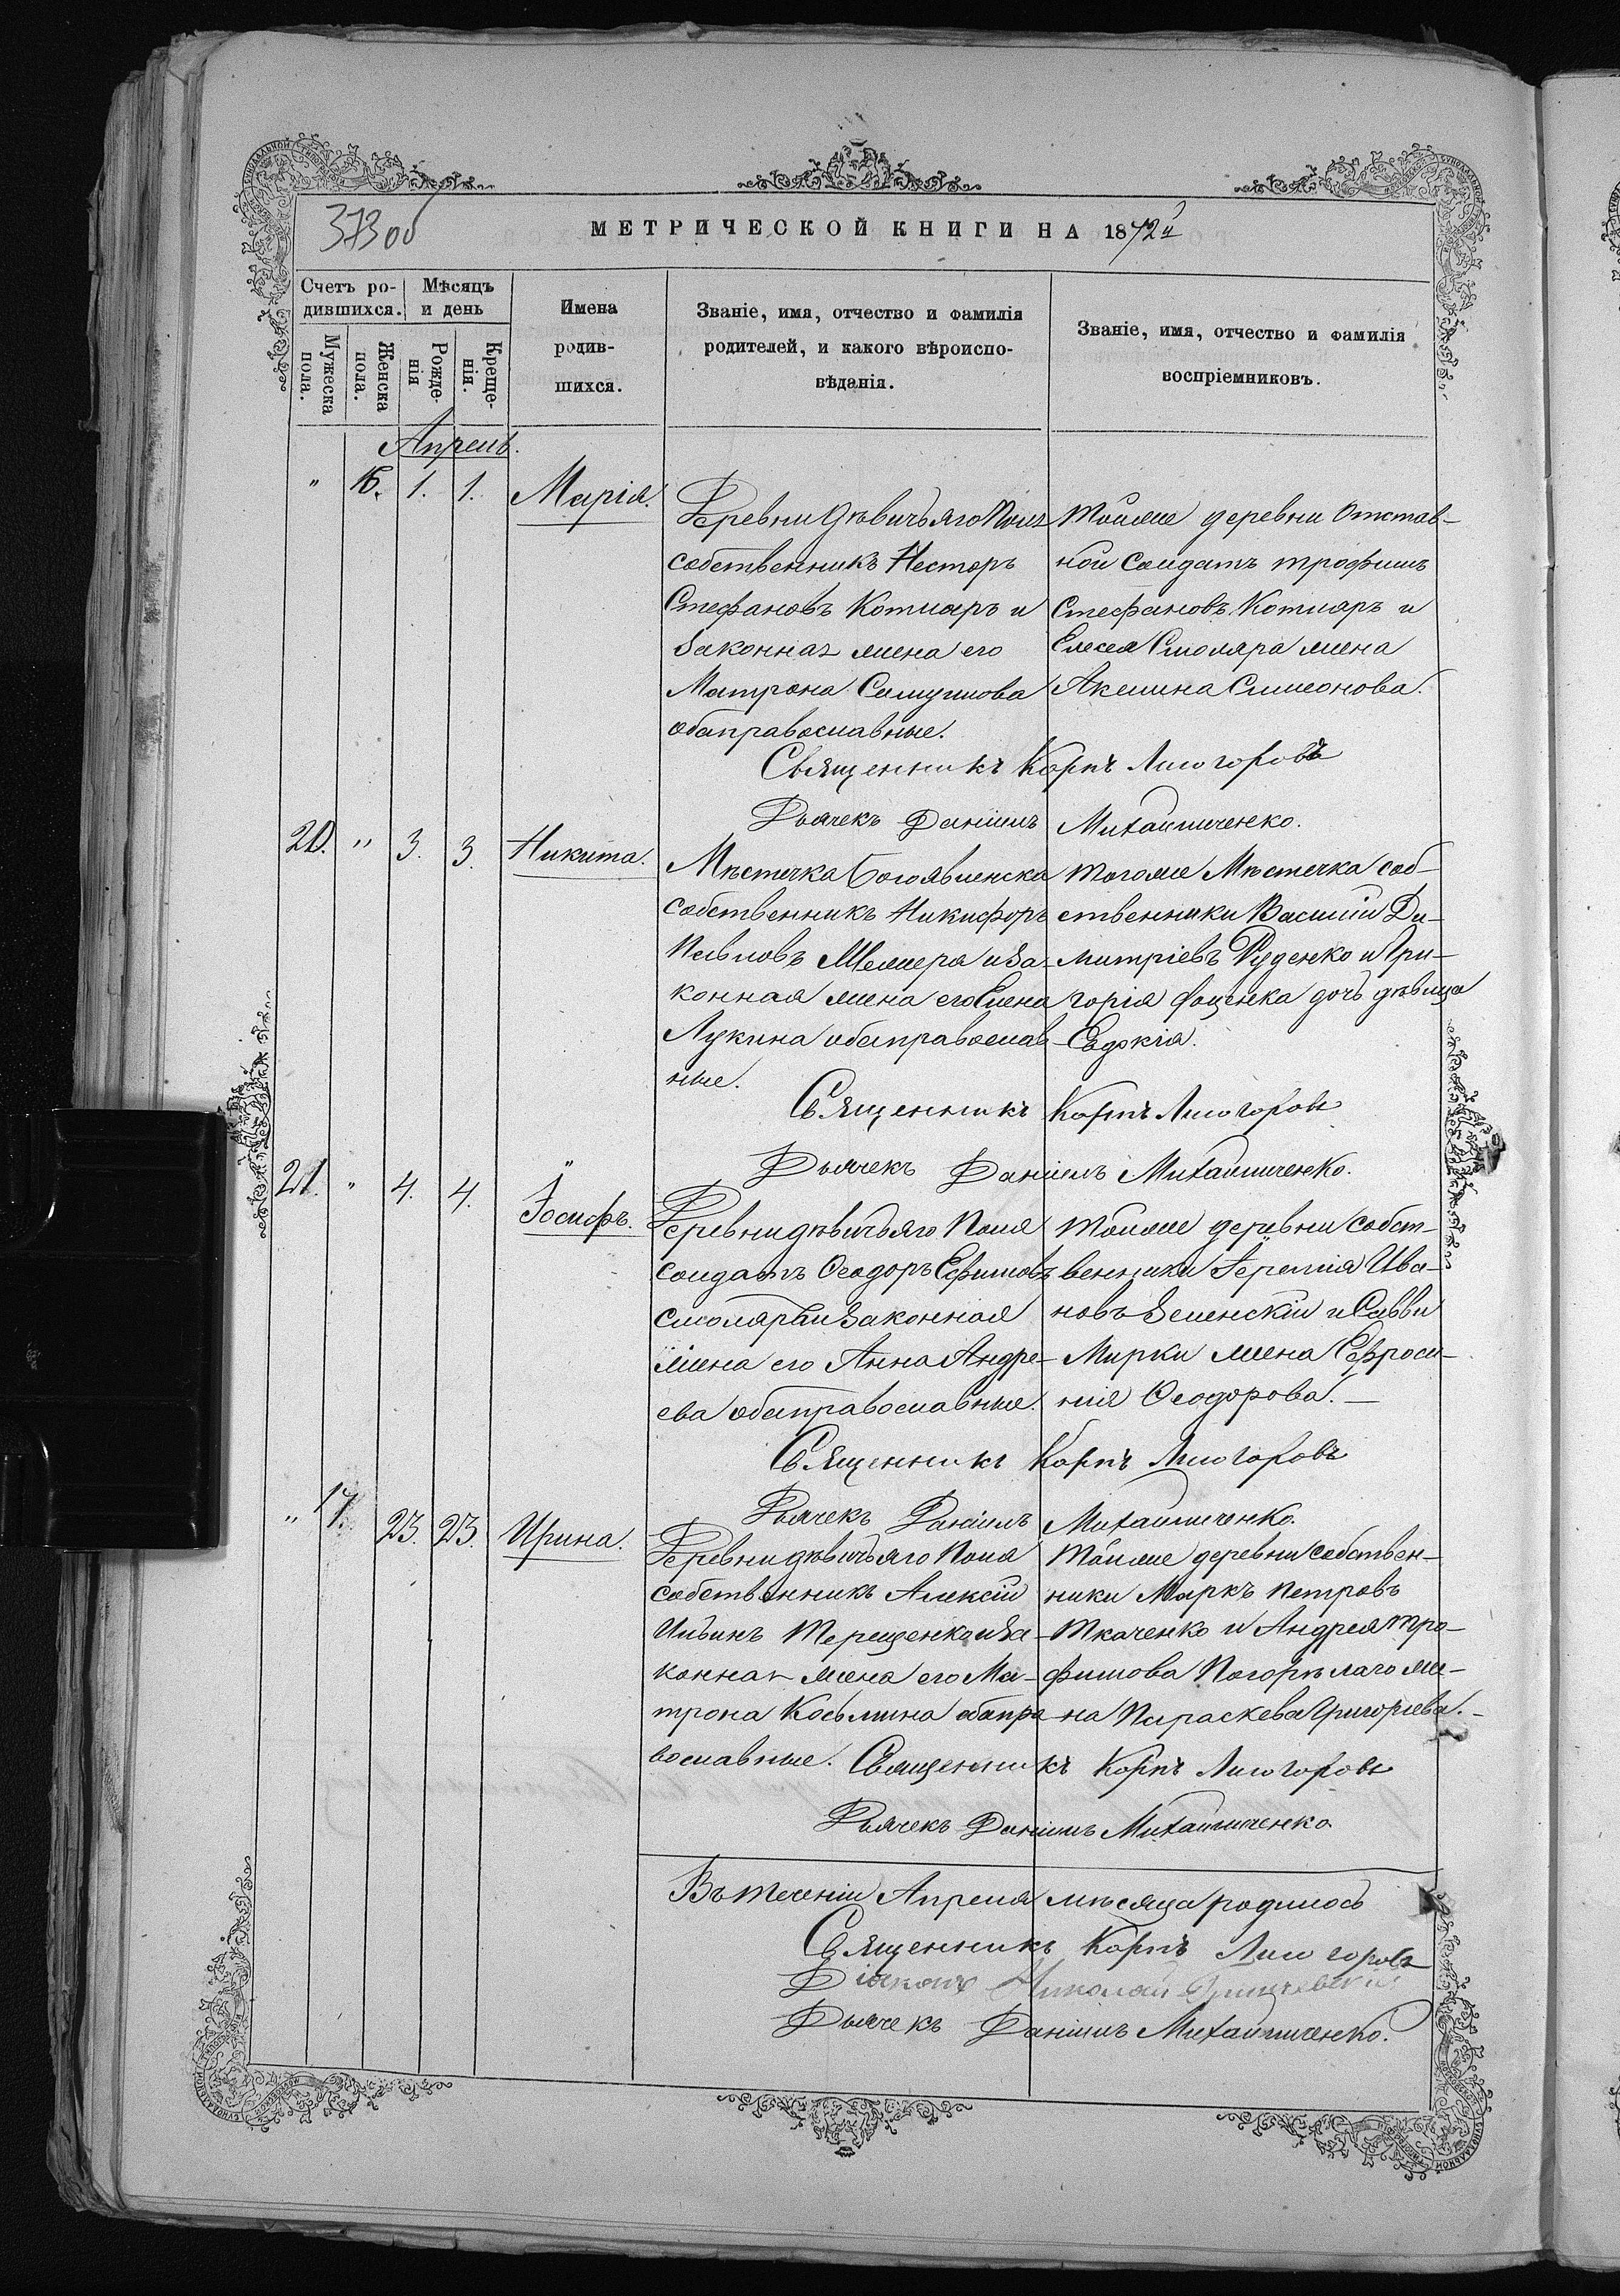 373 об
МЕТРИЧЕСКОЙ КНИГИ НА 1872й
Счетъ ро-
дившихся.
Мѣсяцъ
и день
Имена
родив-
шихся.
Званіе, имя, отчество и фамилія
родителей, и какого вѣроиспо-
вѣданія.
Званіе, имя, отчество и фамилія
воспріемниковъ.
Мужеска
пола.
Женска
пола.
Рожде-
нія
Креще-
нія.
Апрель.
" 16. 1. 1. Марія.
Деревни Дѣвичьяго Поля
собственникъ Несторъ
Стефановъ Котляръ и
законная жена его
Матрона Самуилова
оба православные.
тойже деревни Отстав-
ной солдатъ Трофимъ
Стефановъ Котляръ и
Елесея Смоляра жена
Акилина Симеонова.
Священникъ Карпъ Лисогоровъ
Дьячекъ Даніилъ Михайличенко.
20. " 3. 3. Никита.
Мѣстечка Богоявленска
собственникъ Никифоръ
Павловъ и за-
конная жена его Елена
Лукина оба православ-
ные.
тогоже Мѣстечка соб-
ственники Василій Ди-
митріевъ Руденко и Гри-
горія Фоценка дочь дѣвица
Евдокія.
Священникъ Карпъ Лисогоровъ
Дьячекъ Даніилъ Михайличенко.
21. " 4. 4. Іосифъ.
Деревни дѣвичьяго Поля
солдатъ Ѳеодоръ Ефимовъ
Смоляръ и законная
жена его Анна Андре-
ева оба православные.
тойже деревни собст-
венники Іеремія Ива-
новъ Зеленскій и Саввы
Мирки жена Ефроси-
нія Ѳеодорова. —
Священникъ Карпъ Лисогоровъ
Дьячекъ Даніилъ Михайличенко.
" 17. 23. 23. Ирина.
Деревни дѣвичьяго Поля
собственникъ Алексій
Ильинъ Терещенко и за-
конная жена его Ма-
трона Косьмина оба пра-
вославные.
тойже деревни собствен-
ники Маркъ Петровъ
Ткаченко и Андрея Тро-
фимова Погорѣлаго же-
на Параскева Григоріева. –
Священникъ Карпъ Лисогоровъ
Дьячекъ Даніилъ Михайличенко
Въ теченіи Апреля мѣсяца родилось
Священникъ Карпъ Лисогоровъ
Діаконъ Николай
Дьячекъ Даніилъ Михайличенко.